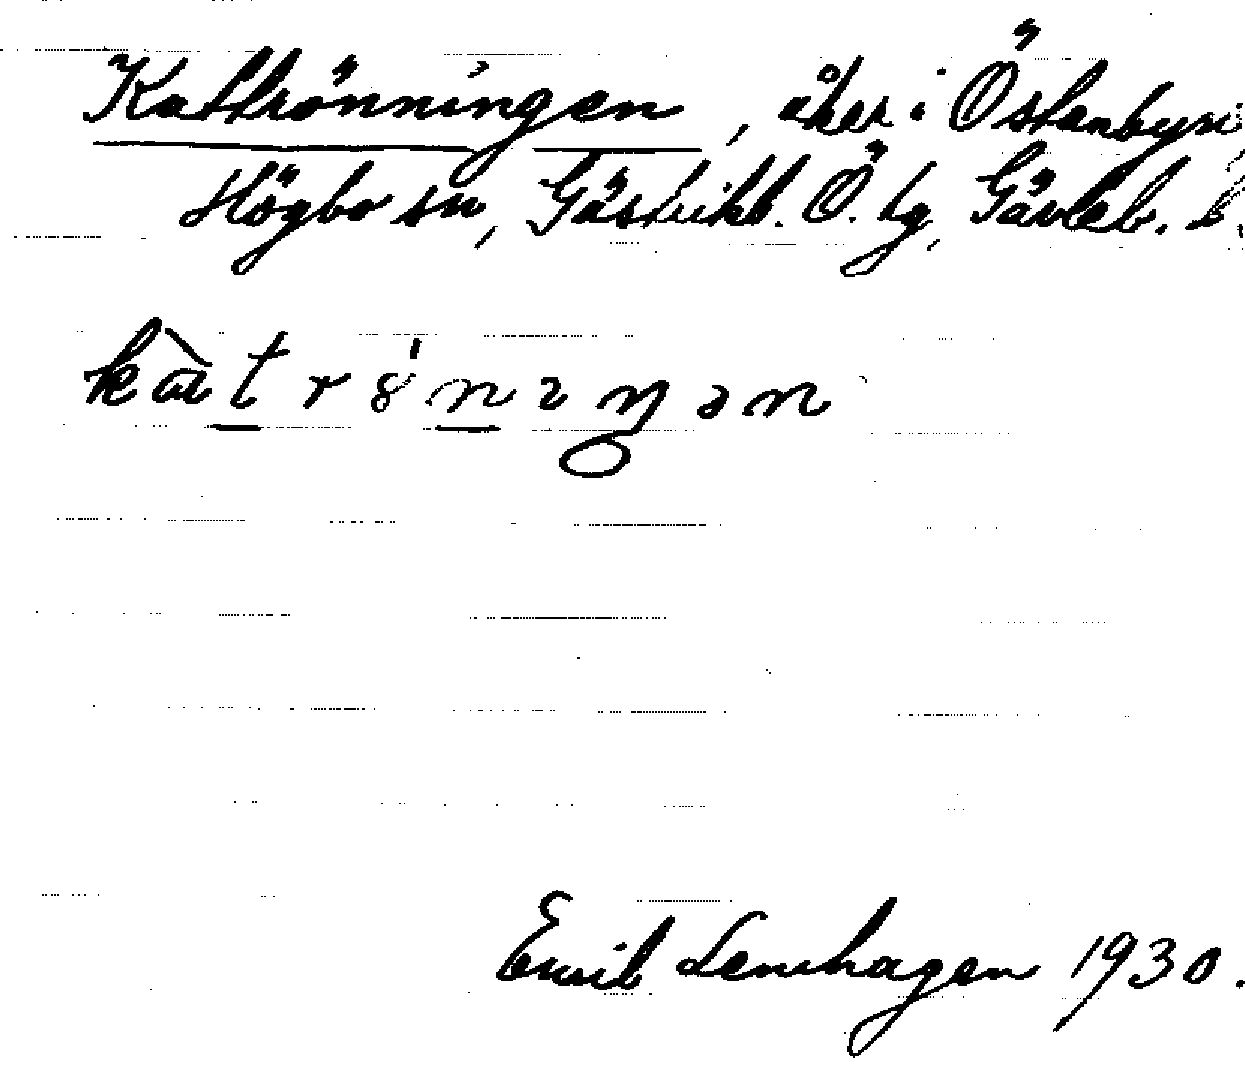 Kattrönningen, åker i Östanbyn,
Högbo sn, Gästrikl. Ö. tg, Gävleb. l.
kàtrö́niŋən
Emil Lenhagen 1930.